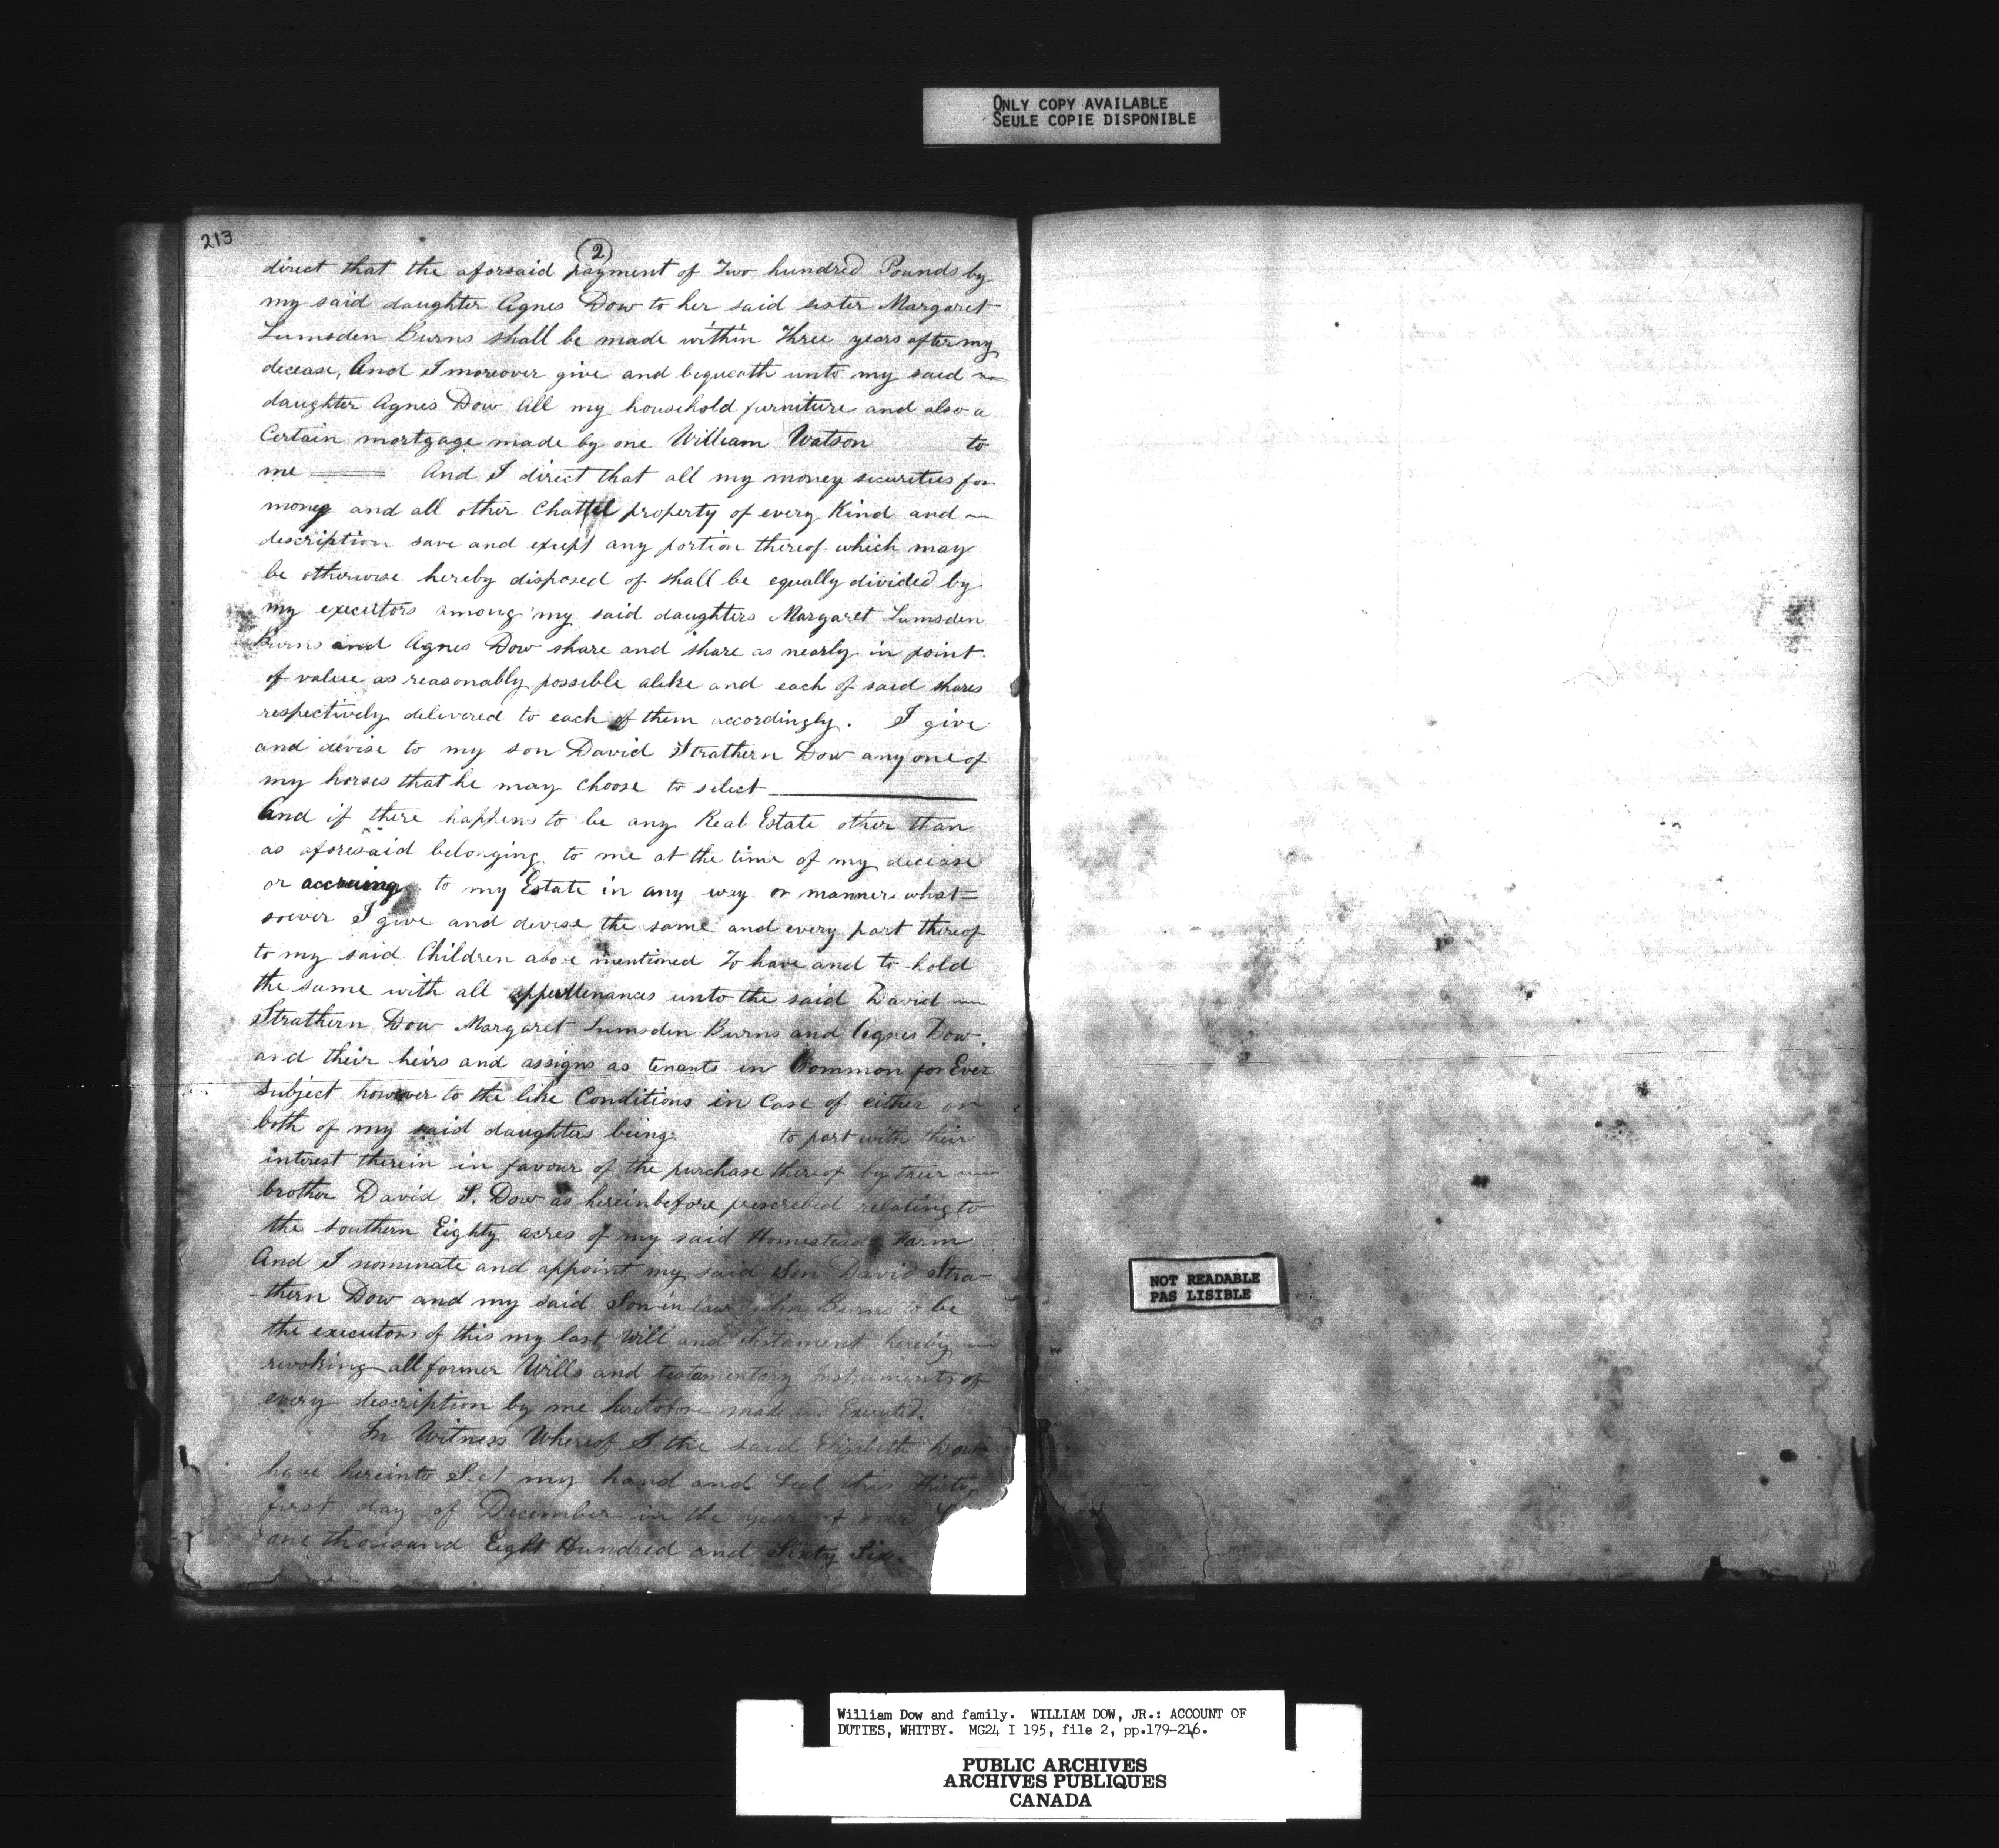 ONLY COPY AVAILABLE
SEULE COPIE DISPONIBLE
213
2
direct that the aforsaid payment of Two hundred Pounds by
my said daughter Agnes Dow to her said sister Margaret
Lumsden Burns shall be made within Three years after my
decease, And I moreover give and bequeath unto my said
daughter Agnes Dow All my household furniture and also a
Certain mortgage made by one William Watson to
me And I direct that all my money securities for
money and all other Chattel property of every Kind and
description save and except any portion thereof which may
be otherwise hereby disposed of shall be equally divided by
my executors among my said daughters Margaret Lumsden
Burns and Agnes Dow share and share as nearly in point
of value as reasonably possible alike and each of said shares
respectively delivered to each of them accordingly. I give
and devise to my son David Strathern Dow any one of
my horses that he may choose to select
And if there happens to be any Real Estate other than
as aforesaid belonging to me at the time of my decease
or accruing to my Estate in any way or manner what=
soever I give and devise the same and every part thereof
to my said Children above mentioned To have and to hold
the same with all appurtenances unto the said David
Strathern Dow Margaret Lumsden Burns and Agnes Dow
and their heirs and assigns as tenants in Common for Ever
subject however to the like Conditions in Case of either or
both of my said daughters being to part with their
interest therein in favour of the purchase thereof by their
brother David S. Dow as hereinbefore prescribed relating to
the southern Eighty acres of my said Homestead Farm
And I nominate and appoint my said Son David Stra-
-thern Dow and my said Son in law John Burns to be
the executors of this my last Will and Testament hereby
revoking all former Wills and testamentary Instruments of
every description by me heretofore made and Executed.
In Witness Whereof I the said Elizabeth Dow
have hereinto Set my hand and Seal this Thirty
first day of December in the year of our
one thousand Eight Hundred and Sixty Six.
NOT READABLE
PAS LISIBLE
William Dow and family. WILLIAM DOW, JR.: ACCOUNT OF
DUTIES, WHITBY. MG24 I 195, file 2, pp.179-216.
PUBLIC ARCHIVES
ARCHIVES PUBLIQUES
CANADA